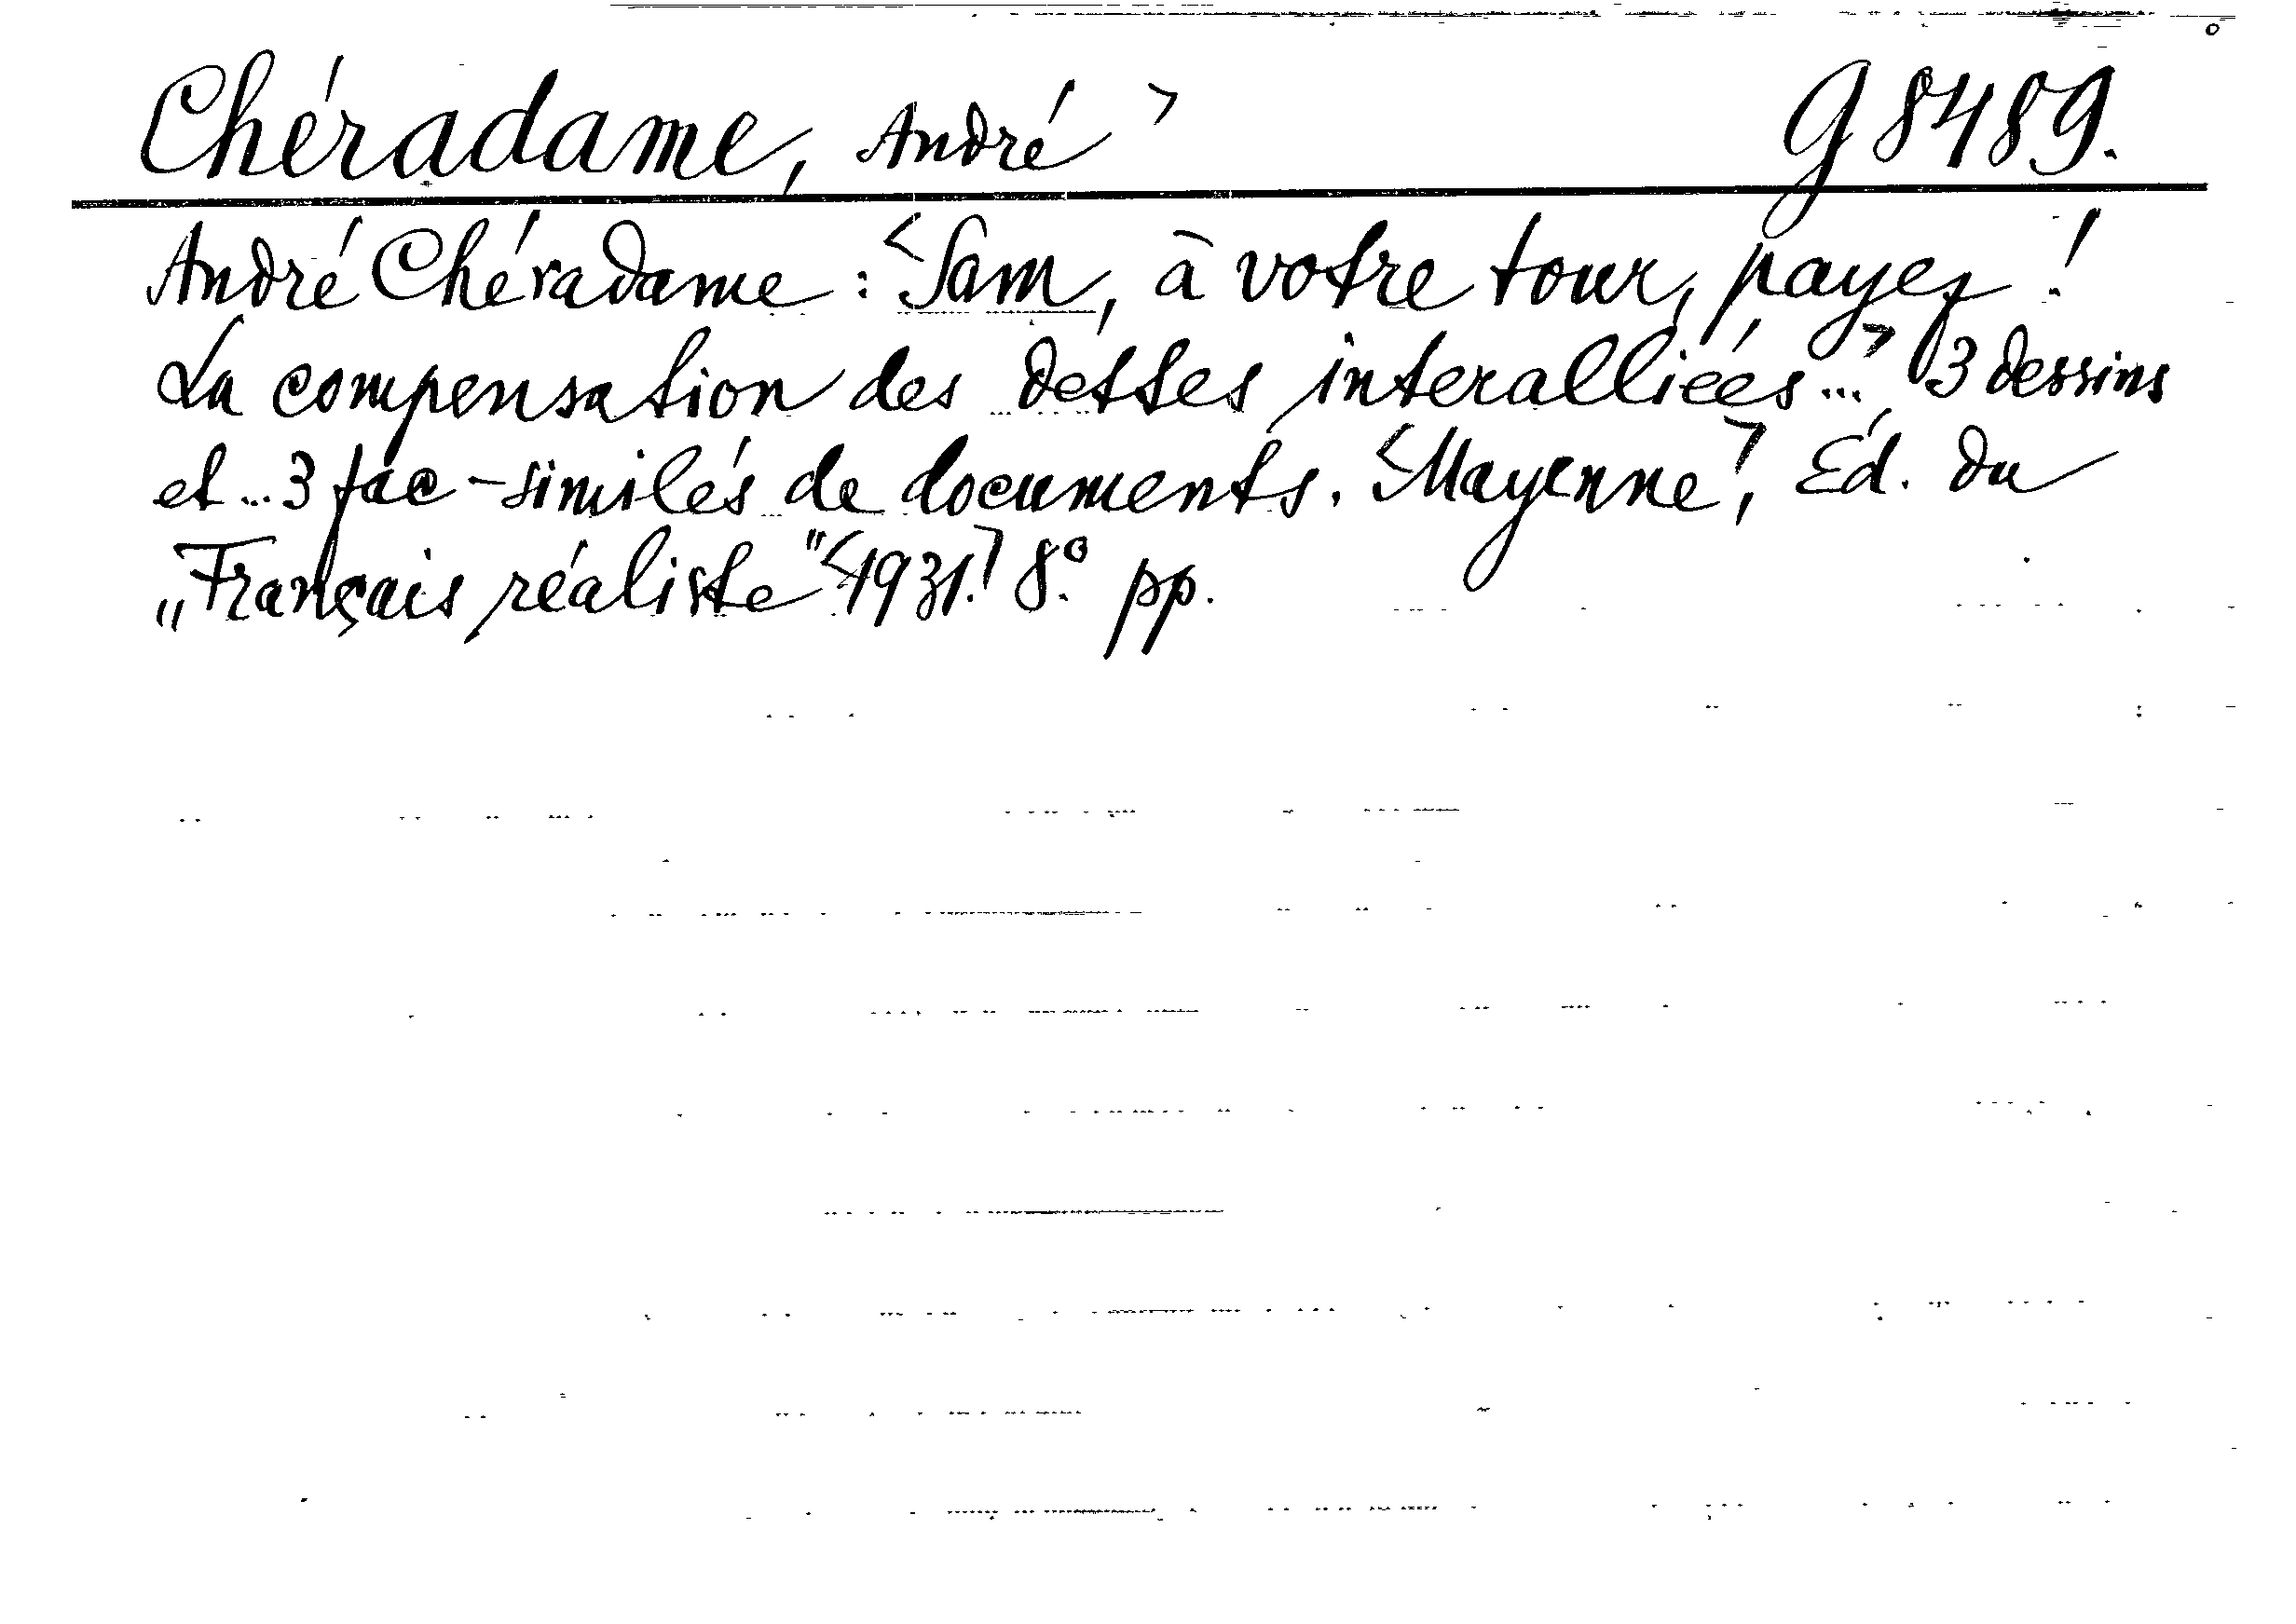 Chéradame, André > G 8489.
André Chéradame: <Sam, à votre tour, payez!
La compensation des dettes interalliées...> 3 dessins
et ... 3 fac-similés de documents. <Mayenne>, Éd. du
„Français réaliste" <1931.> 8.° pp.